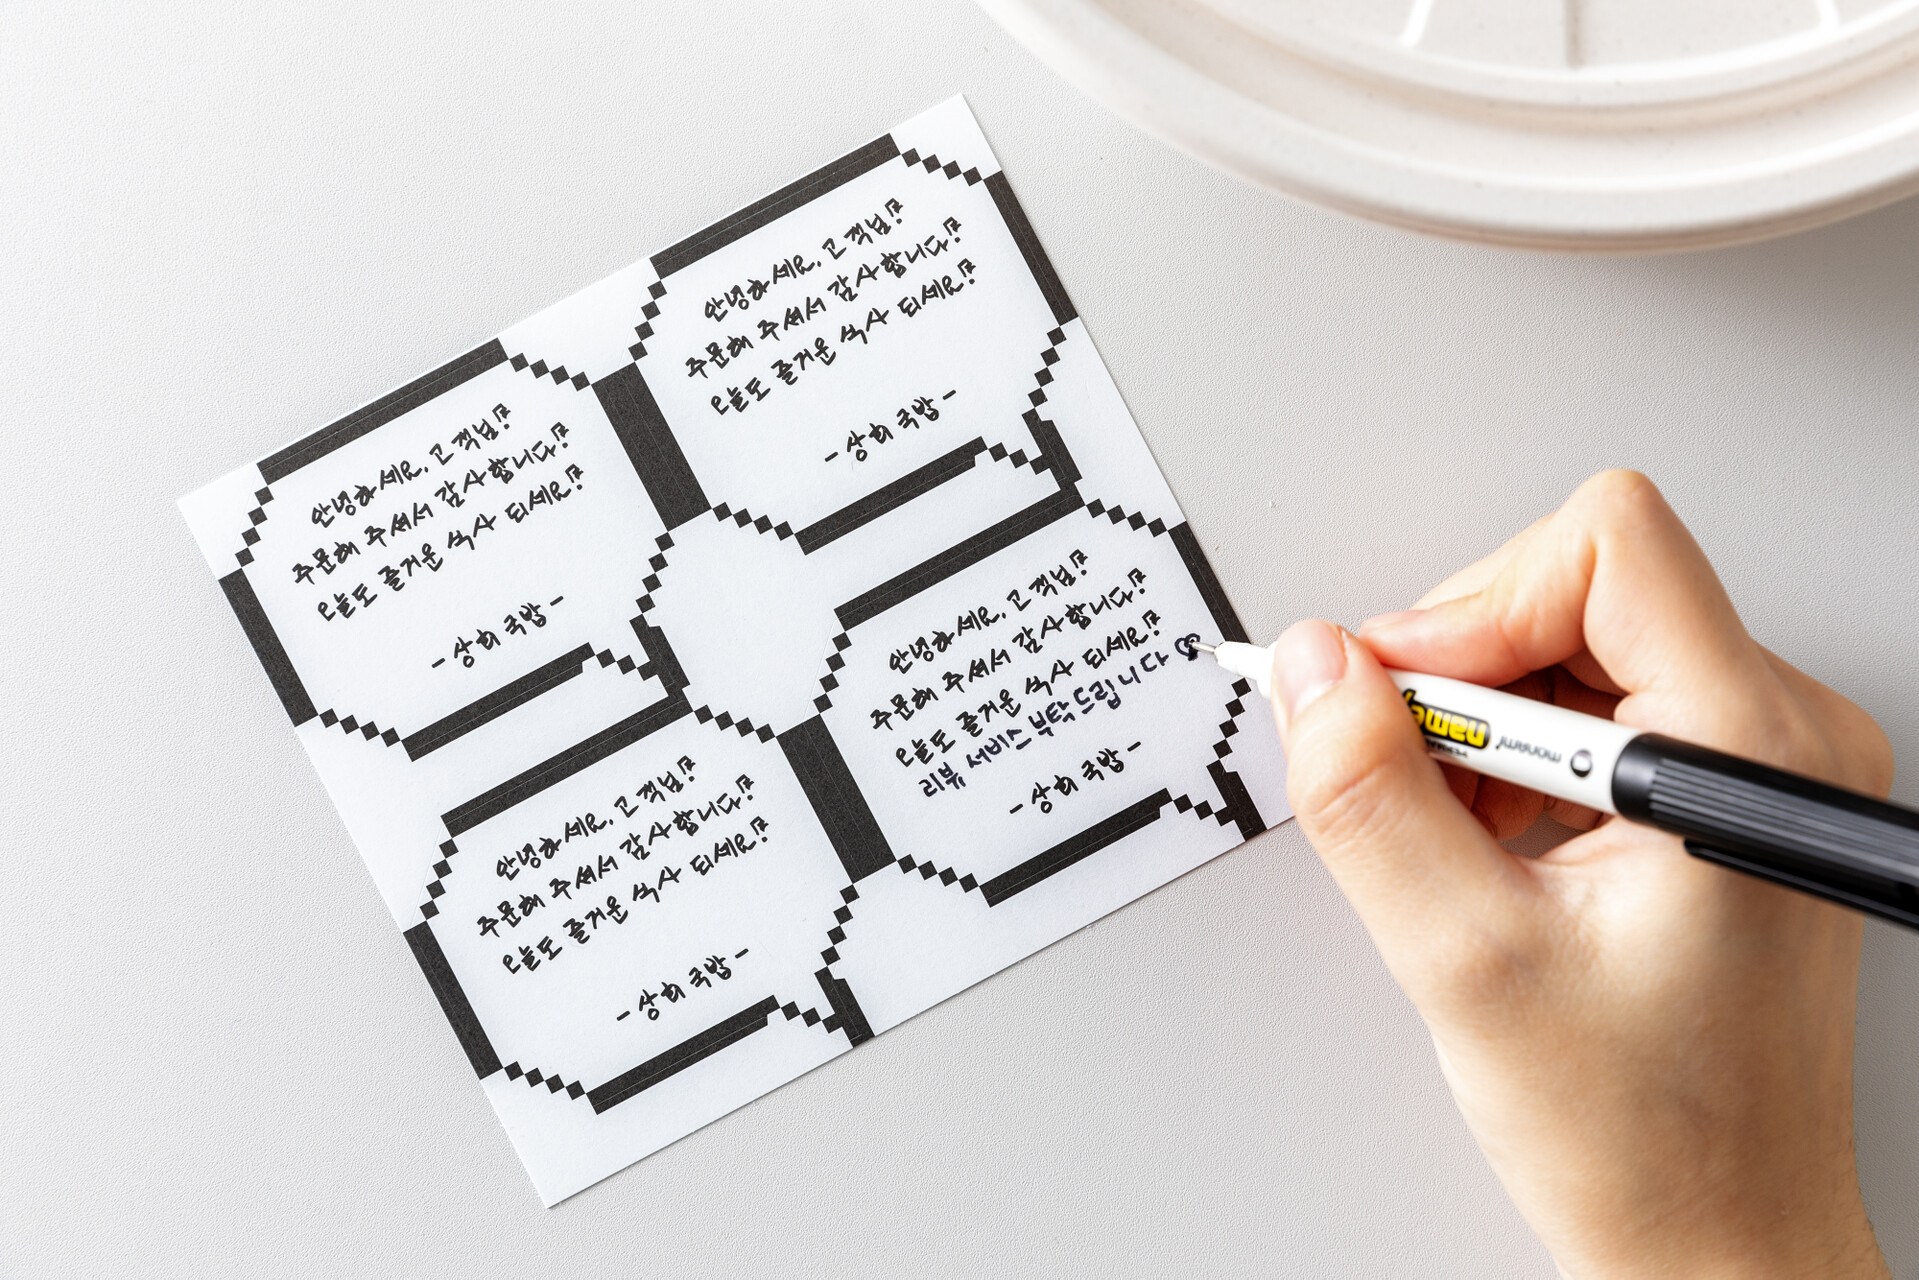 안녕하세요, 고객님!
주문해 주셔서 감사합니다!
오늘도 즐거운 식사 되세요!
- 상희 국밥 -
안녕하세요, 고객님!
주문해 주셔서 감사합니다!
오늘도 즐거운 식사 되세요!
- 상희 국밥 -
안녕하세요, 고객님!
주문해 주셔서 감사합니다!
오늘도 즐거운 식사 되세요!
- 상희 국밥 -
안녕하세요, 고객님!
주문해 주셔서 감사합니다!
오늘도 즐거운 식사 되세요!
리뷰 서비스 부탁드립니다 ♡
- 상희 국밥 -
monami
namey